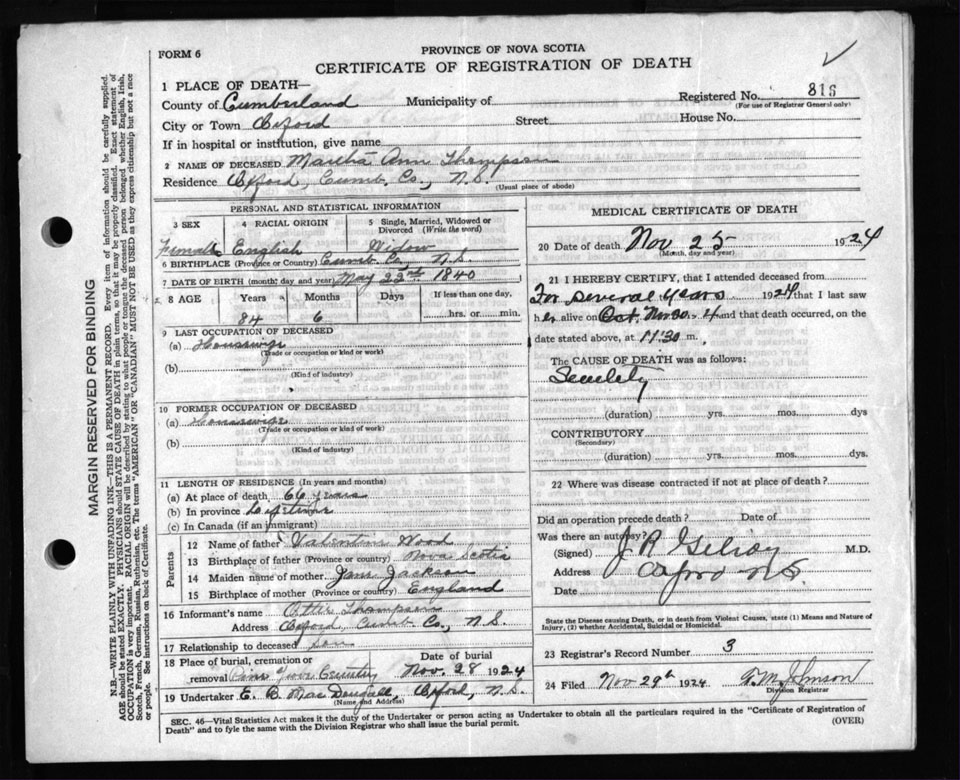 FORM 6
PROVINCE OF NOVA SCOTIA
CERTIFICATE OF REGISTRATION OF DEATH
1 PLACE OF DEATH—
Registered No. 816
County of Cumberland Municipality of
(For use of Registrar General only)
City or Town Oxford Street House No.
If in hospital or institution, give name
2 NAME OF DECEASED Martha Ann Thompson
Residence Oxford, Cumb. Co., N.S.
(Usual place of abode)
PERSONAL AND STATISTICAL INFORMATION
3 SEX 4 RACIAL ORIGIN 5 Single, Married, Widowed or Divorced (Write the word)
Female English Widow
6 BIRTHPLACE (Province or Country) Cumb. Co., N.S.
7 DATE OF BIRTH (month: day and year) May 22nd 1840
8 AGE Years Months Days If less than one day,
84 6 hrs. or min.
9 LAST OCCUPATION OF DECEASED
(a) Housewife
(Trade or occupation or kind or work)
(b)
(Kind of industry)
10 FORMER OCCUPATION OF DECEASED
(a) Housewife
(Trade or occupation or kind of work)
(b)
(Kind of industry)
11 LENGTH OF RESIDENCE (In years and months)
(a) At place of death 66 years
(b) In province Lifetime
(c) In Canada (if an immigrant)
Parents
12 Name of father Valentine Wood
13 Birthplace of father (Province or country) Nova Scotia
14 Maiden name of mother Jane Jackson
15 Birthplace of mother (Province or country) England
16 Informant's name Thompson
Address Oxford, Cumb. Co., N.S.
17 Relationship to deceased son
18 Place of burial, cremation or removal Date of burial
Pine Grove Cemetery Nov. 28 1924
19 Undertaker E. B. MacDougall, Oxford, N.S.
(Name and Address)
MEDICAL CERTIFICATE OF DEATH
20 Date of death Nov 25 1924
(Month, day and year)
21 I HEREBY CERTIFY, that I attended deceased from
For several years 1924 that I last saw
her alive on and that death occurred, on
date stated above, at 11:30 m.
The CAUSE OF DEATH was as follows:
Senility
(duration) yrs. mos. dys
CONTRIBUTORY
(Secondary)
(duration) yrs. mos. dys.
22 Where was disease contracted if not at place of death?
Did an operation precede death? Date of
Was there an autopsy?
(Signed) J R Gilroy M.D.
Address Oxford N.S.
Date
State the Disease causing Death, or in death from Violent Causes, state (1) Means and Nature of Injury, (2) whether Accidental, Suicidal or Homicidal.
23 Registrar's Record Number 3
24 Filed Nov 29th 1924 Johnson
Division Registrar
SEC. 46—Vital Statistics Act makes it the duty of the Undertaker or person acting as Undertaker to obtain all the particulars required in the "Certificate of Registration of
Death" and to fyle the same with the Division Registrar who shall issue the burial permit.
(OVER)
MARGIN RESERVED FOR BINDING
N.B.—WRITE PLAINLY WITH UNFADING INK—THIS IS A PERMANENT RECORD. Every item of information should be carefully supplied.
AGE should be stated EXACTLY. PHYSICIANS should STATE CAUSE OF DEATH in plain terms, so that it may be properly classified. Exact statement of
OCCUPATION is very important. RACIAL ORIGIN will be described by stating to what people or tongue the deceased person belonged whether English, Irish,
Scotch, French, German, Russian, Ruthenian, etc. The terms "AMERICAN" OR "CANADIAN" MUST NOT BE USED as they express citizenship but not a race
or people. See instructions on back of Certificate.